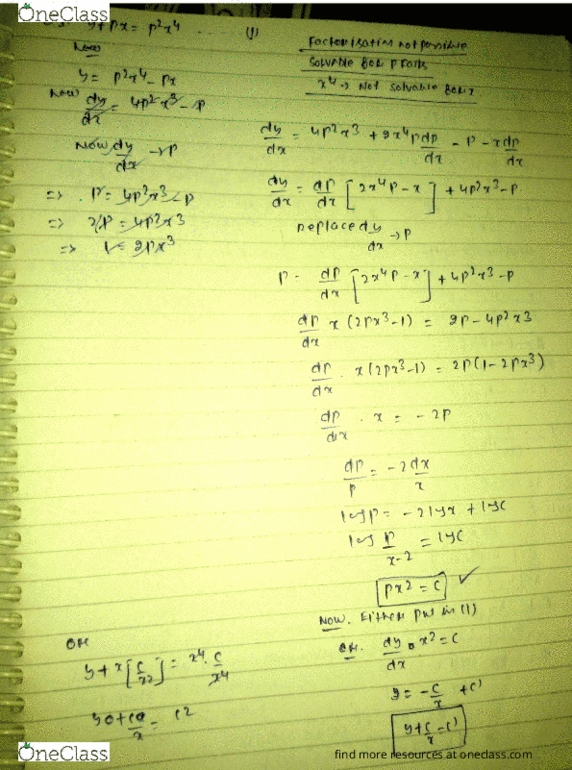 OneClass
y + px = p²x⁴ .... (1)
Now
y = p²x⁴ - px
Now dy/dx = 4p²x³ - p
Now dy/dx → p
⇒ p = 4p²x³ - p
⇒ 2p = 4p²x³
⇒ 1 = 2px³
Factorisation not possible
Solvable for p fails
x⁴ → Not solvable for x
dy/dx = 4p²x³ + 2x⁴p dp/dx - p - x dp/dx
dy/dx = dp/dx [2x⁴p - x] + 4p²x³ - p
Replace dy/dx → p
p = dp/dx [2x⁴p - x] + 4p²x³ - p
dp/dx x (2px³-1) = 2p - 4p²x³
dp/dx . x(2px³-1) = 2p(1 - 2px³)
dp/dx . x = -2p
dp/p = -2 dx/x
log p = -2 log x + log c
log p/x-2 = log c
px² = c ✓
Now. Either put in (1)
OR. dy/dx . x² = c
y = -c/x + c'
y + c/x = c'
OR
y + x [c/x²] = x⁴. c/x⁴
OneClass
find more resources at oneclass.com